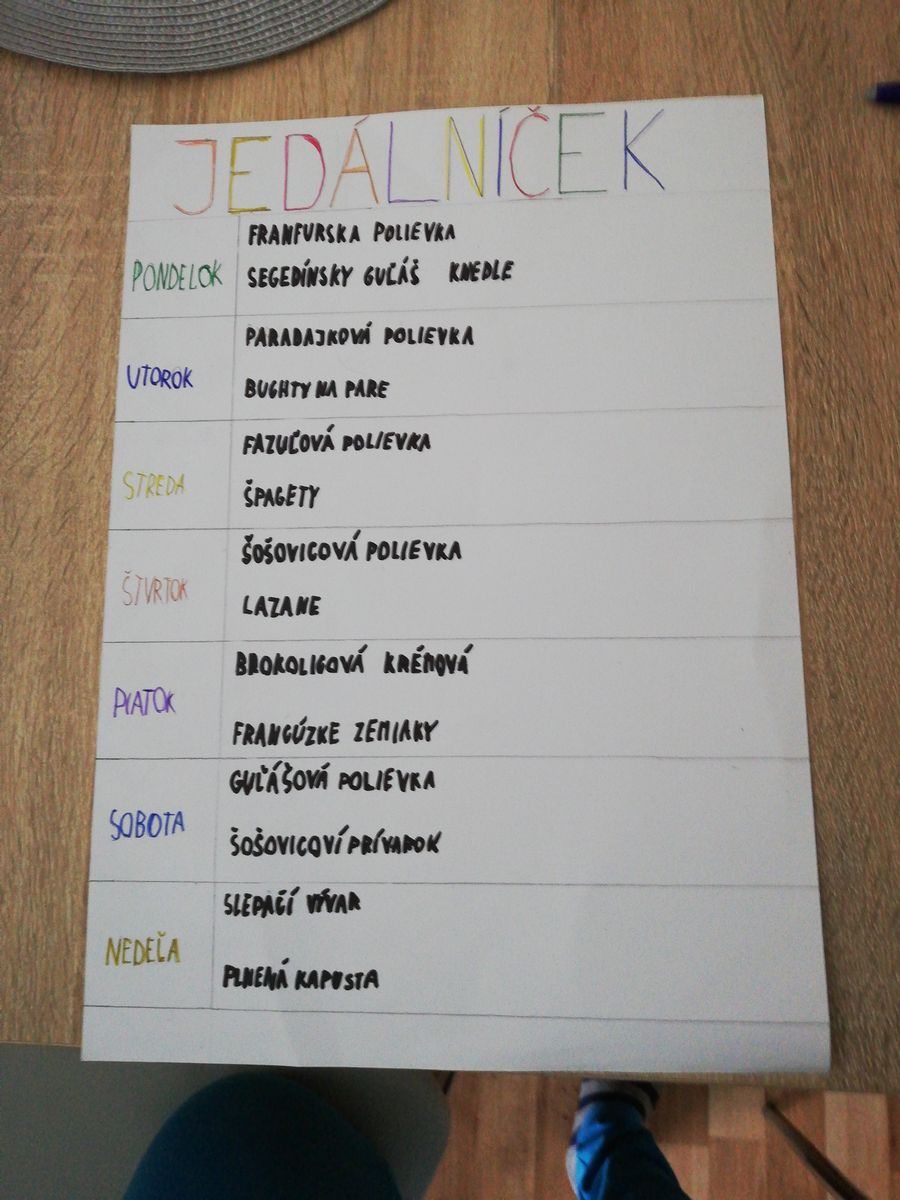 JEDÁLNÍČEK
PONDELOK
FRANFURSKA POLIEVKA
SEGEDÍNSKY GUĽÁŠ KNEDLE
UTOROK
PARADAJKOVÁ POLIEVKA
BUCHTY NA PARE
STREDA
FAZUĽOVÁ POLIEVKA
ŠPAGETY
ŠTVRTOK
ŠOŠOVICOVÁ POLIEVKA
LAZANE
PIATOK
BROKOLICOVÁ KRÉMOVÁ
FRANCÚZKE ZEMIAKY
SOBOTA
GUĽÁŠOVÁ POLIEVKA
ŠOŠOVICOVÍ PRÍVAROK
NEDEĽA
SLEPAČÍ VÍVAR
PLNENÁ KAPUSTA